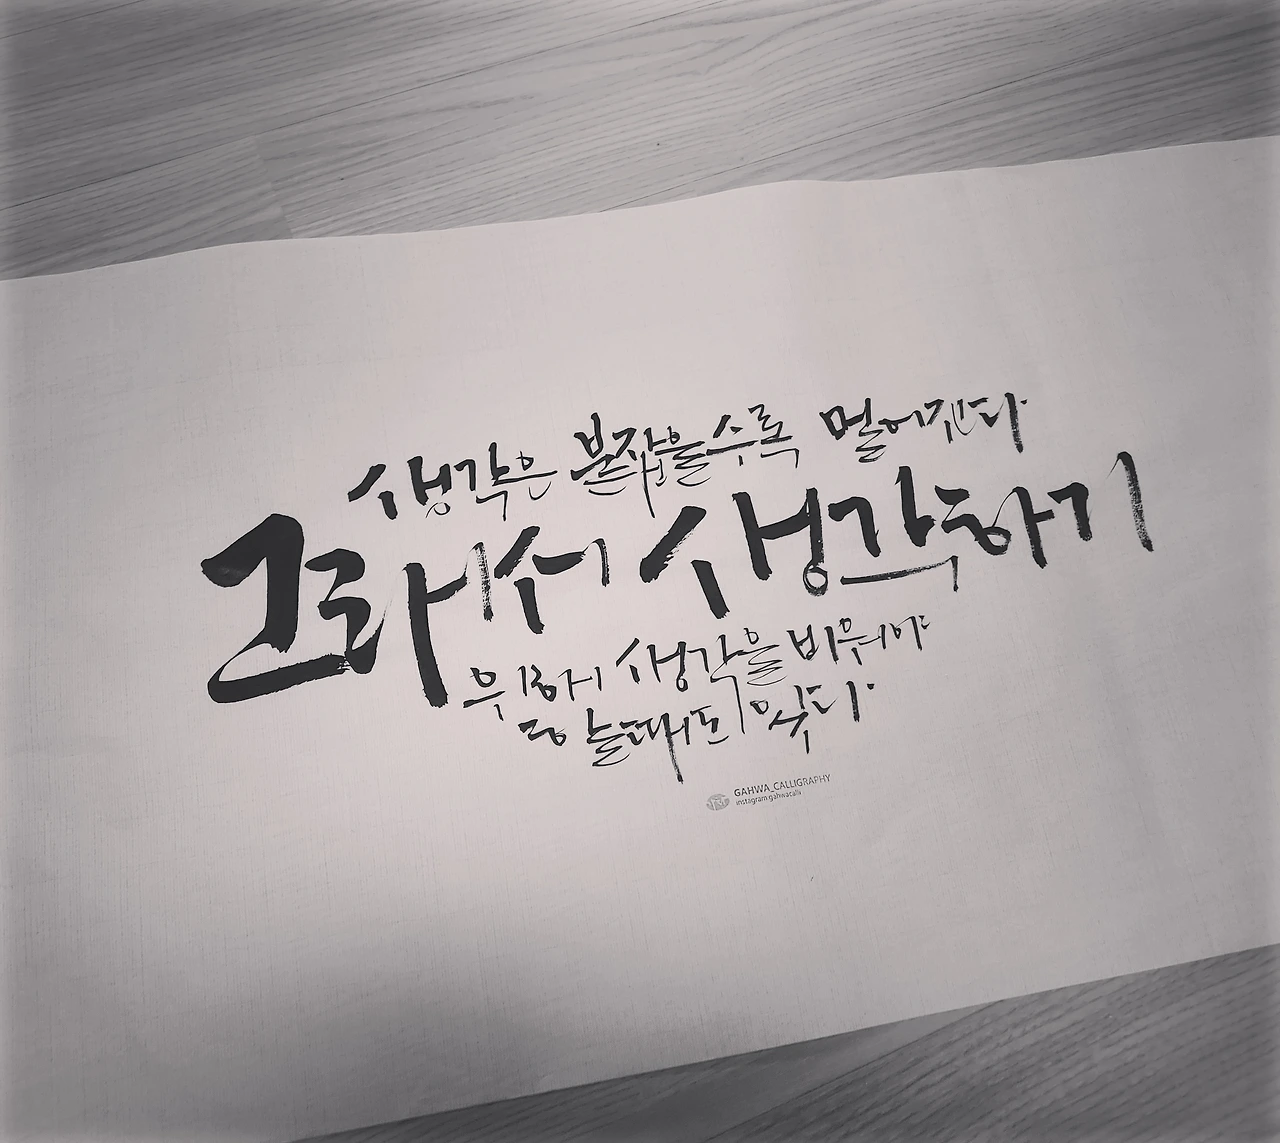 생각은 붙잡을수록 멀어진다
그래서 생각하기
위해 생각을 비워야
할 때도 있다
GAHWA_CALLIGRAPHY
instagram.gahwacalli